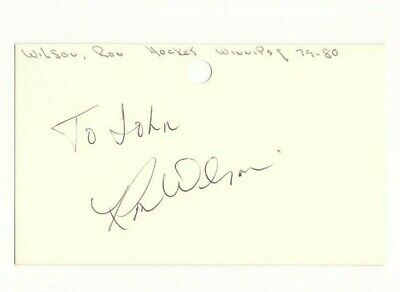 Wilson, Ron Hockey Winnipeg 79-80
To John
Ron Wilson